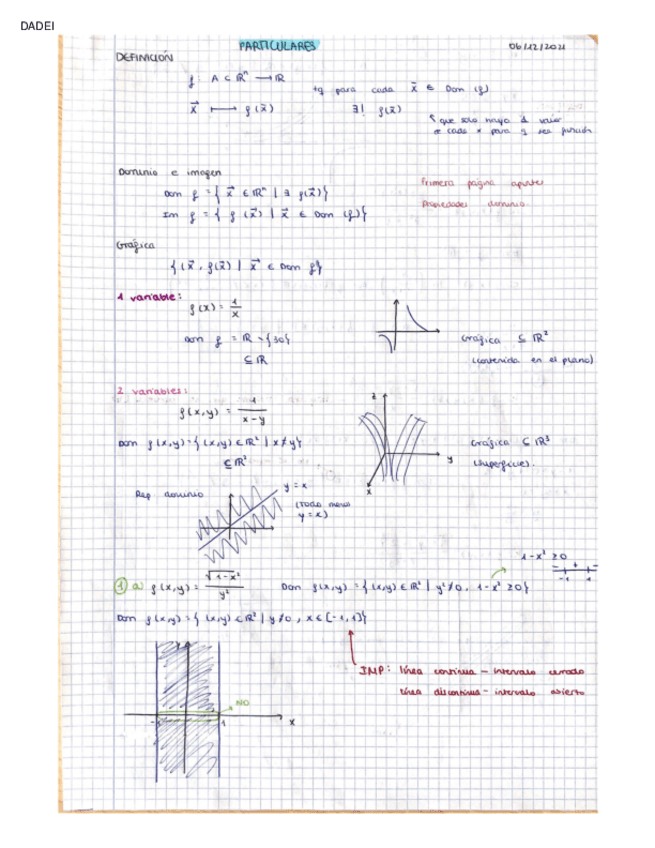 DADEI
PARTICULARES
06/12/2021
DEFINICIÓN
f: A ⊂ ℝⁿ → ℝ
tq para cada x̄ ∈ Dom (f)
x⃗ ⟼ f(x̄) ∃! f(x̄)
que solo haya 1 valor
de cada x para q sea función
Dominio e imagen
Dom f = { x⃗ ∈ ℝⁿ | ∃ f(x⃗)}
Primera página apuntes
Im f = { f(x⃗) | x⃗ ∈ Dom (f)}
Propiedades dominio.
Gráfica
{(x⃗, f(x⃗) | x⃗ ∈ Dom f}
1 variable:
f(x) = 1/x
Dom f = ℝ - {0}
⊆ ℝ
Gráfica ⊆ ℝ²
(contenida en el plano)
2 variables:
f(x,y) = 1/(x-y)
z
y
x
Dom f(x,y) = {(x,y) ∈ ℝ² | x≠y}
⊆ ℝ²
Gráfica ⊆ ℝ³
(superficie).
Rep dominio
y = x
(Todo menos
y = x)
1-x² ≥0
- + -
-1 1
① a) f(x,y) = √(1-x²)/y² Dom f(x,y) = {(x,y) ∈ ℝ² | y²≠0, 1-x² ≥0}
Dom f(x,y) = {(x,y) ∈ ℝ² | y≠0, x∈[-1,1]}
IMP: línea continua - intervalo cerrado
línea discontinua - intervalo abierto
y
NO
-1 1 x